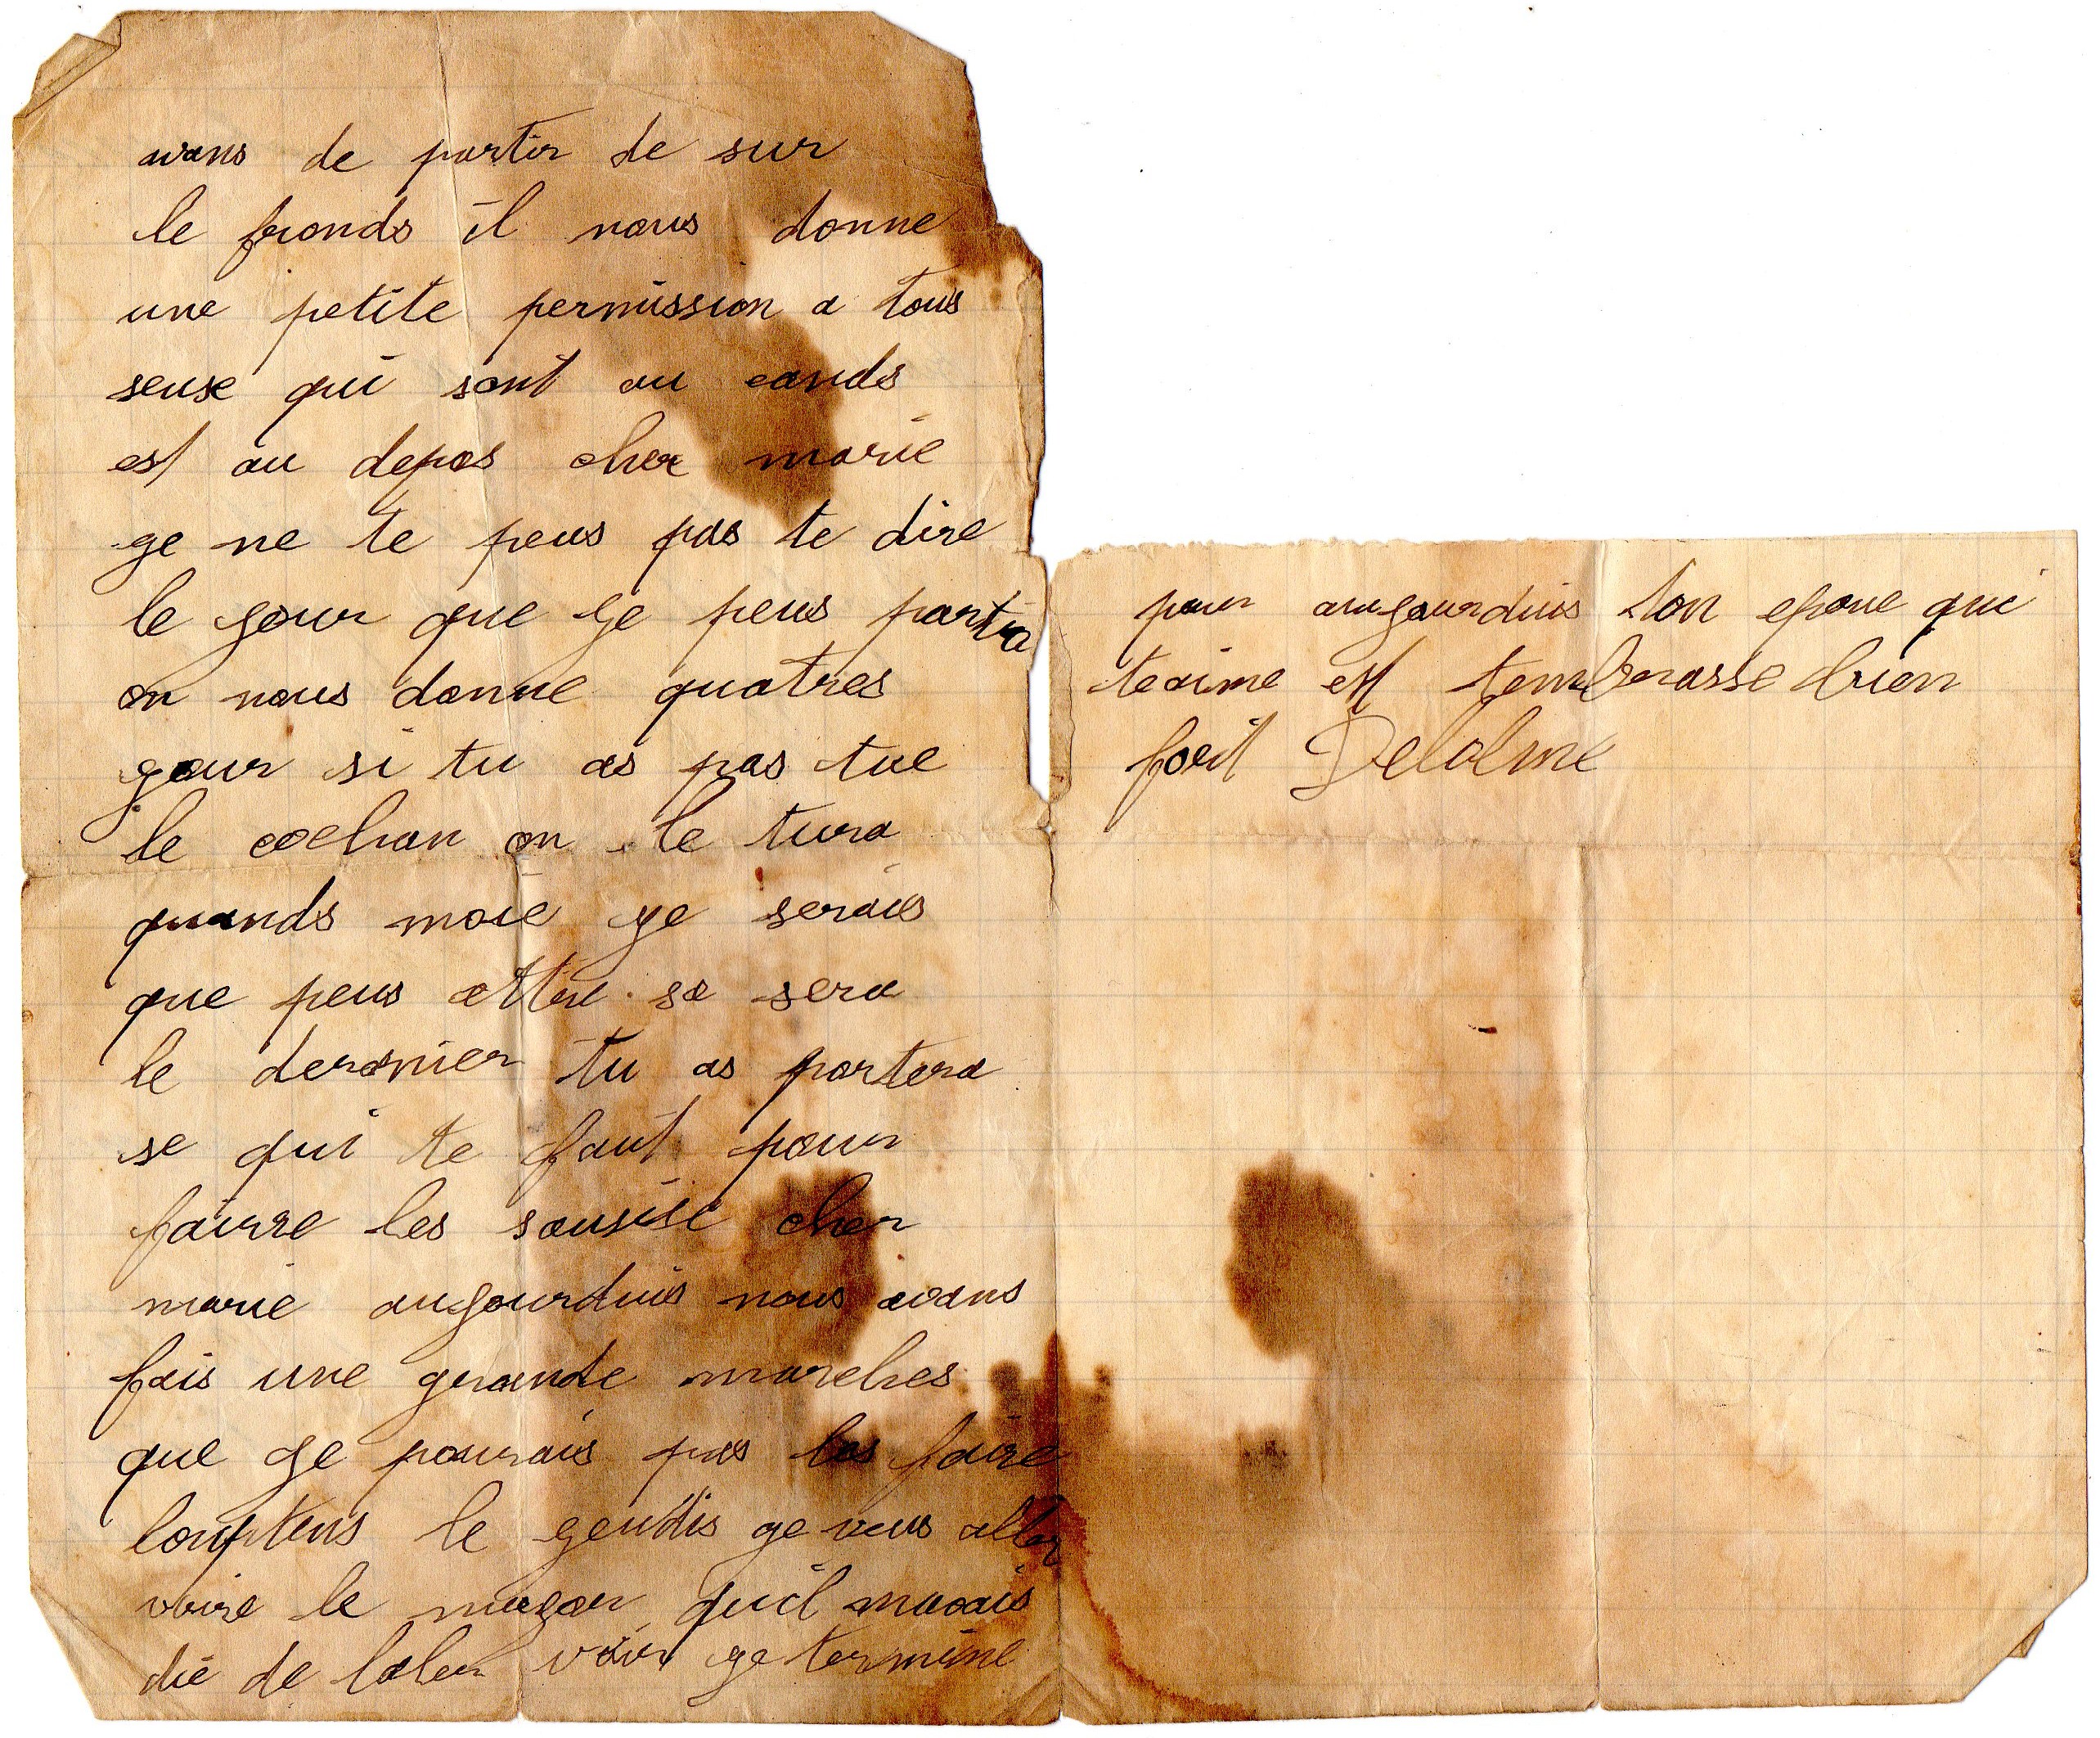 avans de partir de sur
le fronds il nous donne
une petite permission a tous
seuse qui sont au cands
est au depos cher marie
ge ne te peus pas te dire
le gour que ge peus partir
on nous donne quatres
gour si tu as pas tue
le cochan on le tura
quands moie ge serais
que peus ettre sa sera
le dernier tu as portera
se qui te faut pour
fairre les sausise cher
marie augourduis nous avans
fais une grande marches
que ge pourais pas les faire
lontens le geudis ge veus aller
voire le magor quil mavais
die de laler voir ge termine
pour augourduis ton epoue qui
teaime est tembrasse bien
fort Delolme